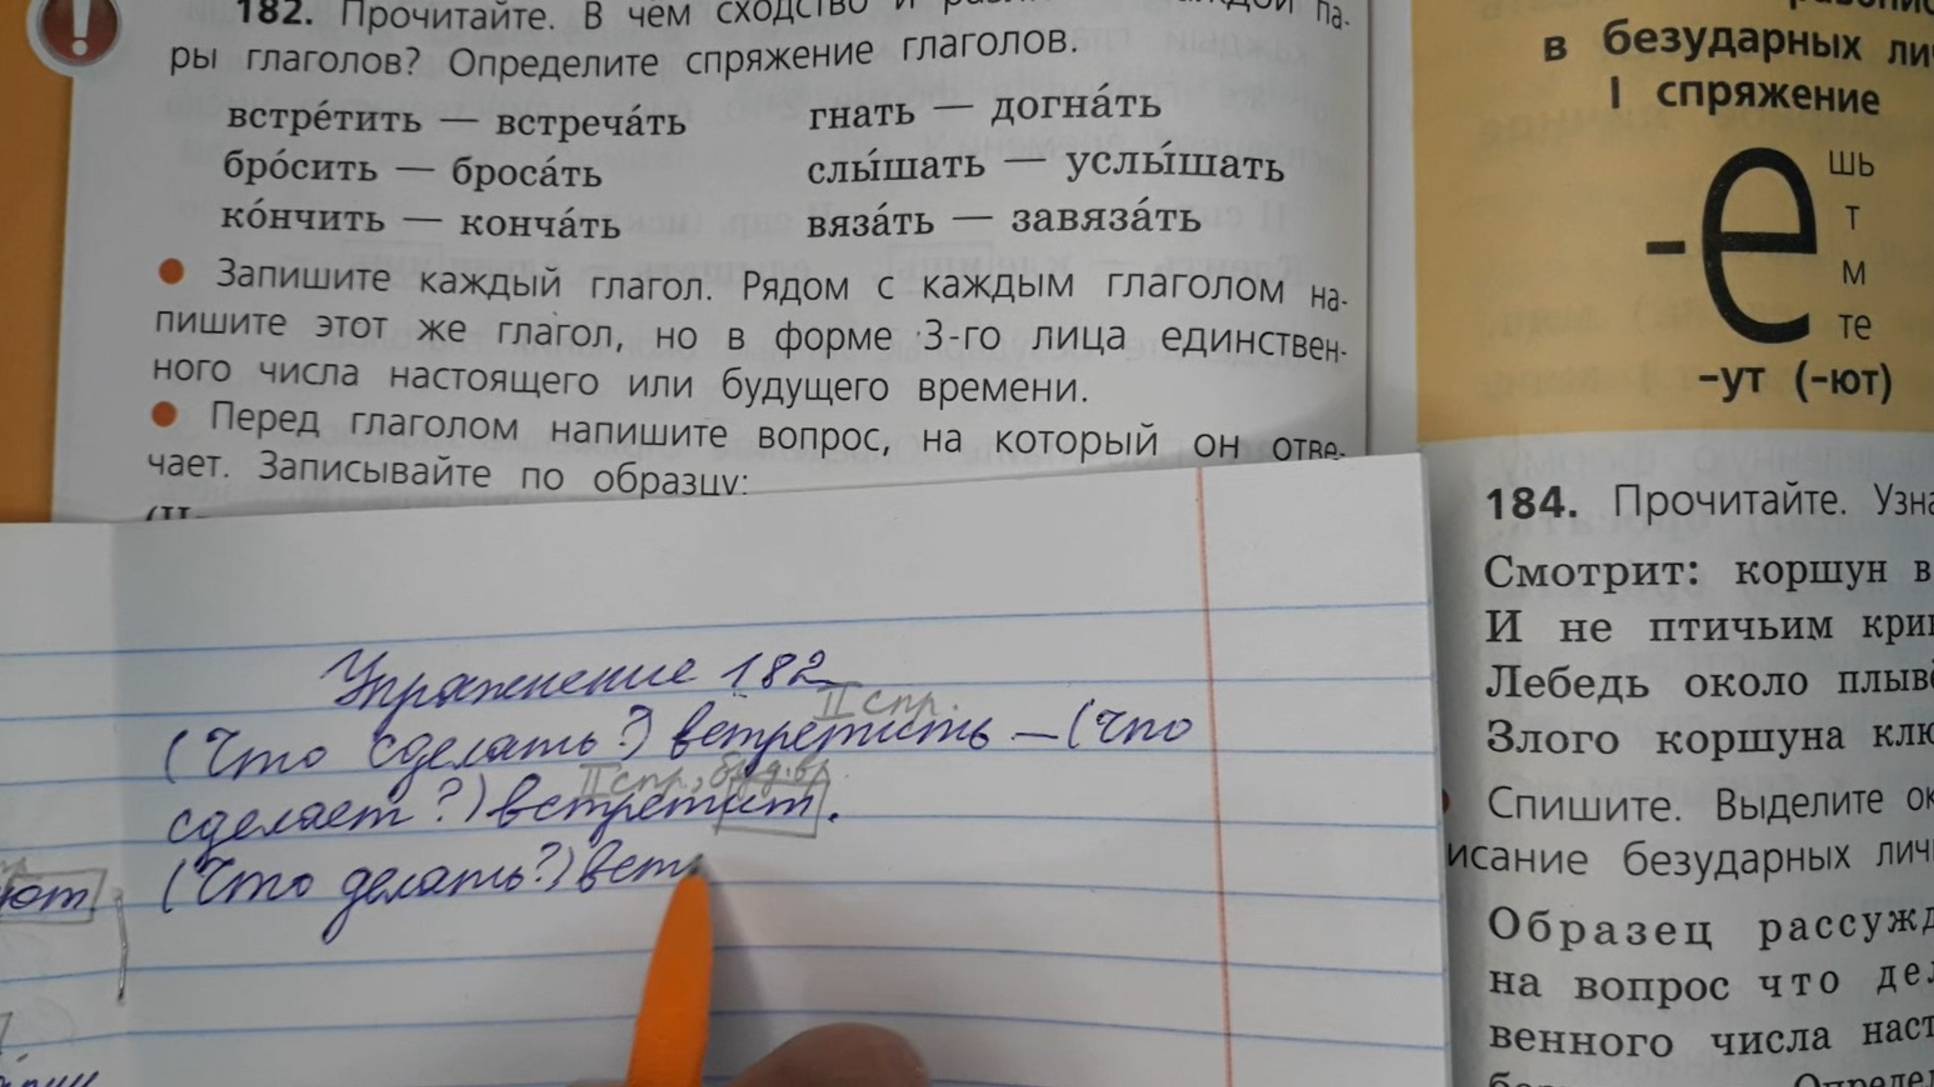 182. Прочитайте. В чём сходство и
па-
ры глаголов? Определите спряжение глаголов.
встре́тить — встреча́ть
гнать — догна́ть
бро́сить — броса́ть
слы́шать — услы́шать
ко́нчить — конча́ть
вяза́ть — завяза́ть
Запишите каждый глагол. Рядом с каждым глаголом на-
пишите этот же глагол, но в форме 3-го лица единствен-
ного числа настоящего или будущего времени.
Перед глаголом напишите вопрос, на который он отве-
чает. Записывайте по образцу:
Упражнение 182
II спр.
(Что сделать?) встретить — (что
II спр., буд.вр.
сделает?) встретит.
(Что делать?) вст
ют
в безударных ли
I спряжение
-е
шь
т
м
те
-ут (-ют)
184. Прочитайте. Узна
Смотрит: коршун в
И не птичьим кри
Лебедь около плывё
Злого коршуна клю
Спишите. Выделите ок
исание безударных лич
Образец рассужд
на вопрос что дел
венного числа наст